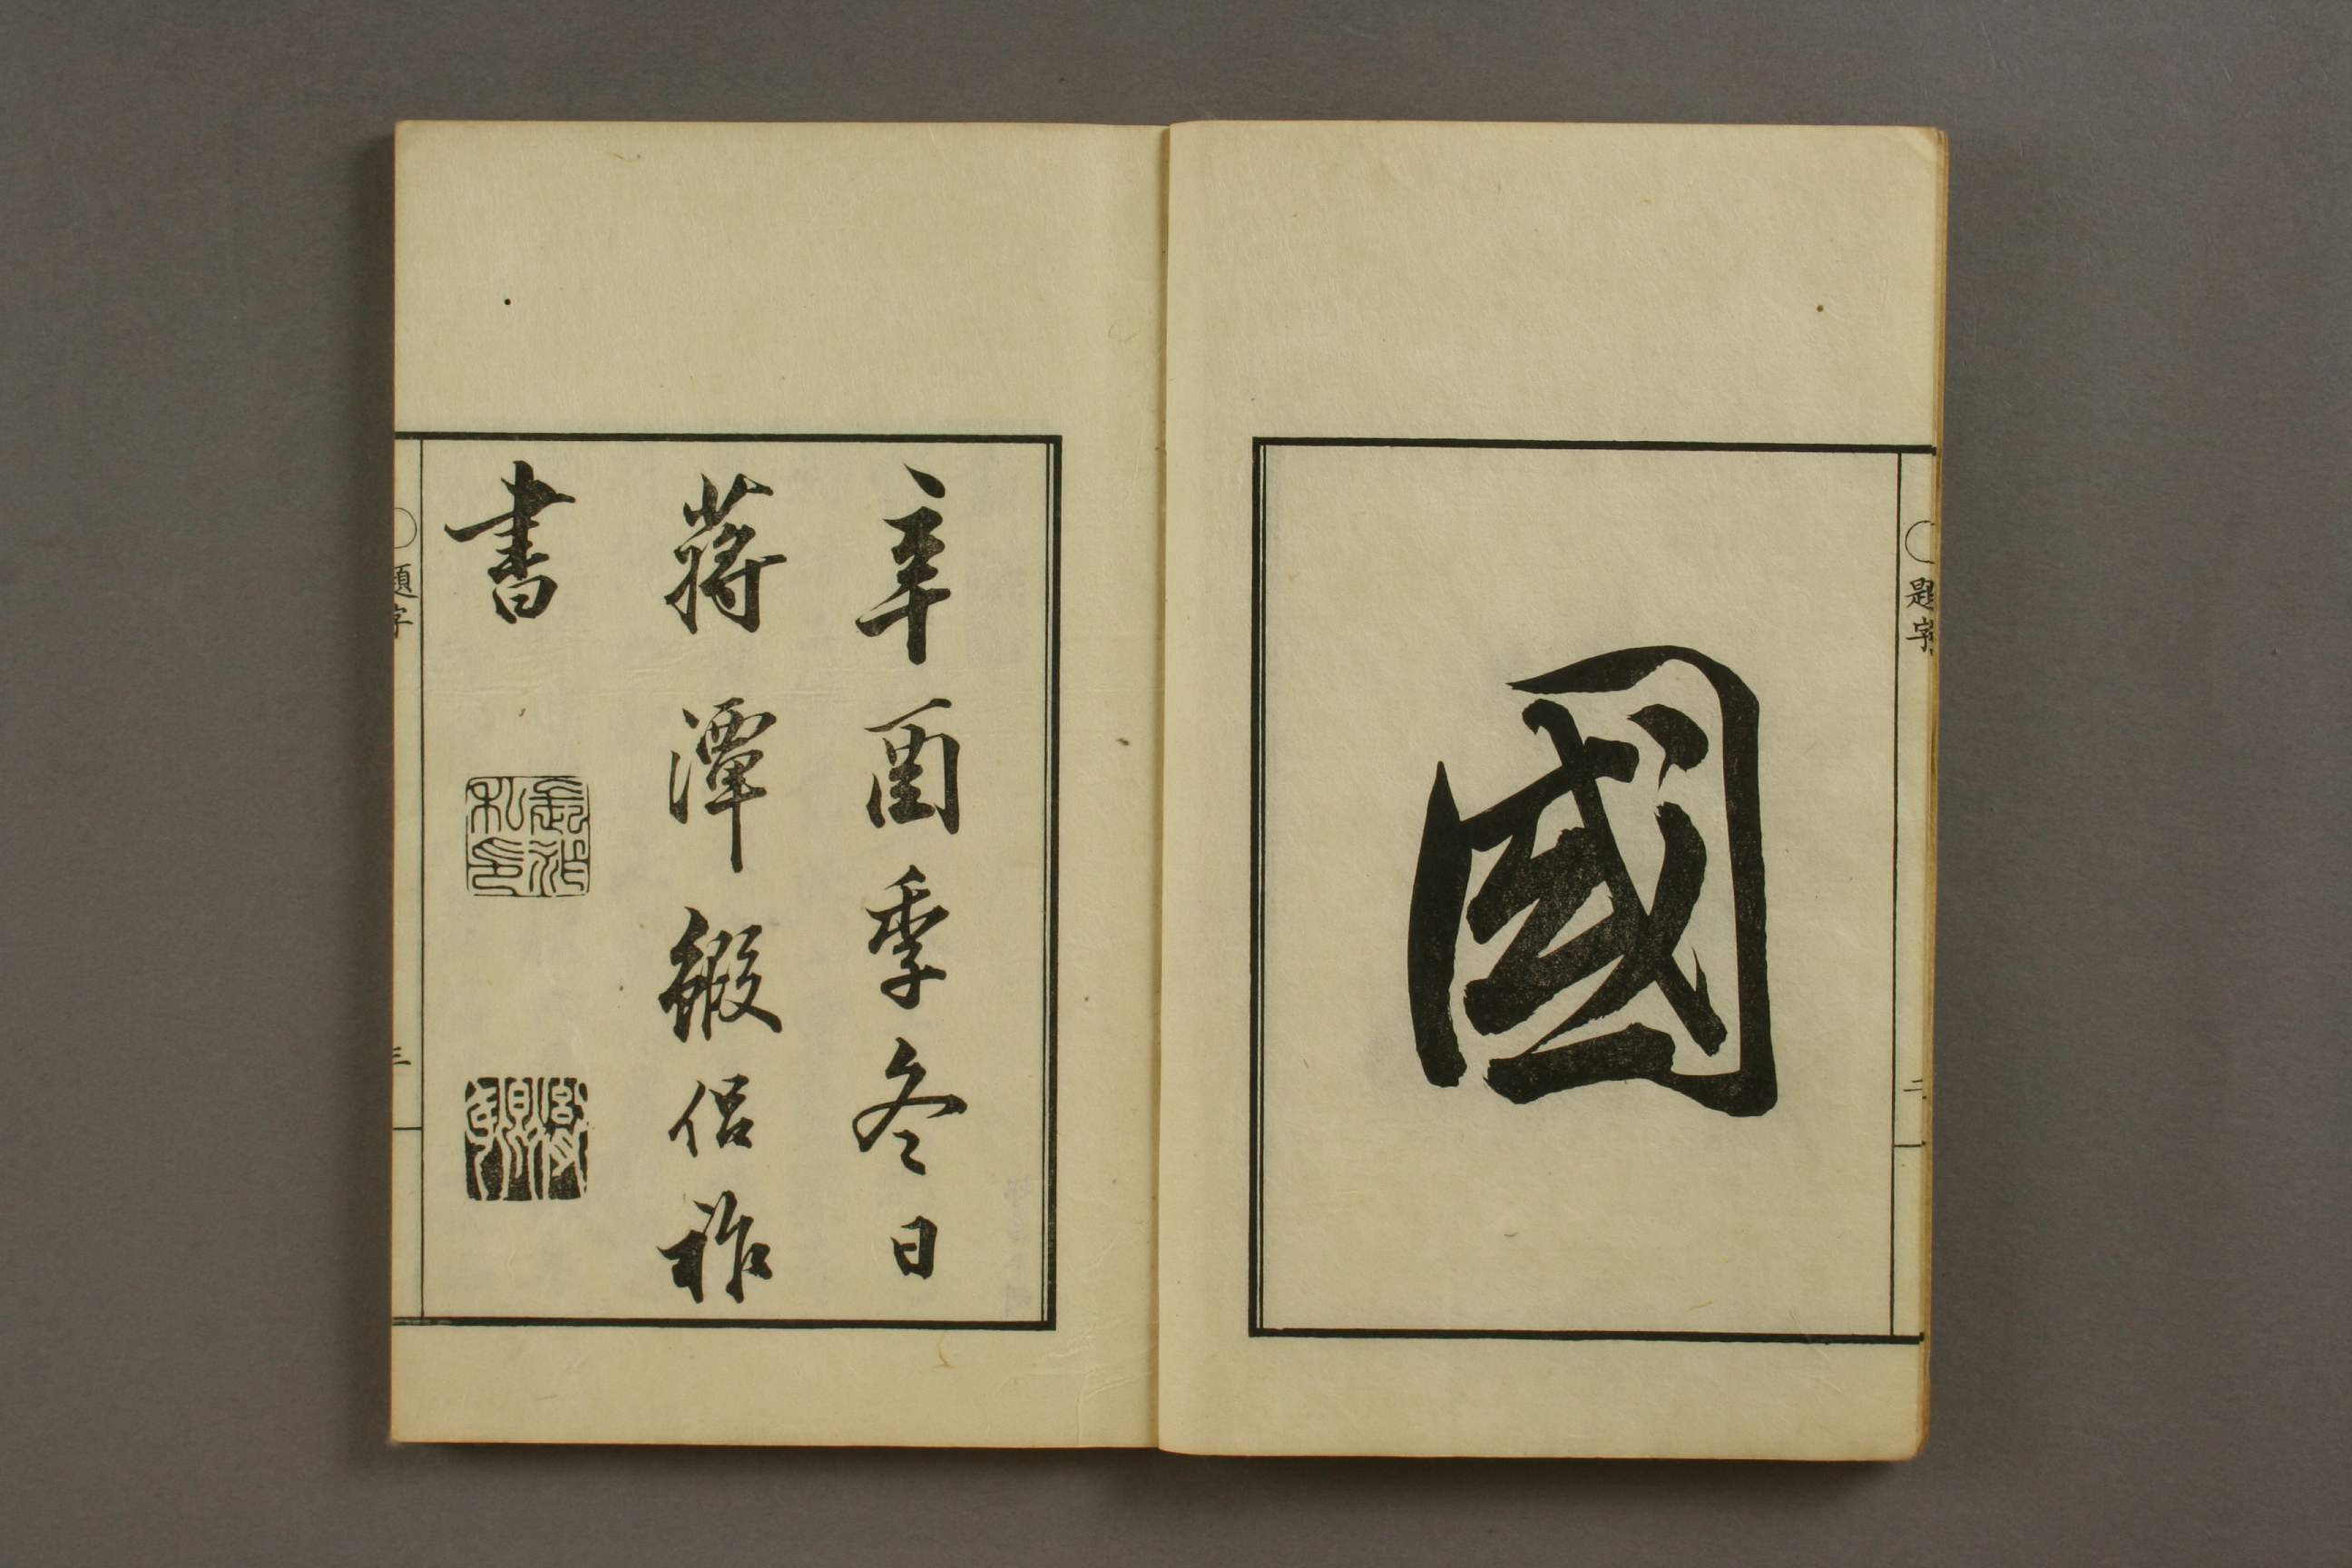 題字
二
國
辛酉季冬日
蔣潭鍛侶祚
書
題字
三